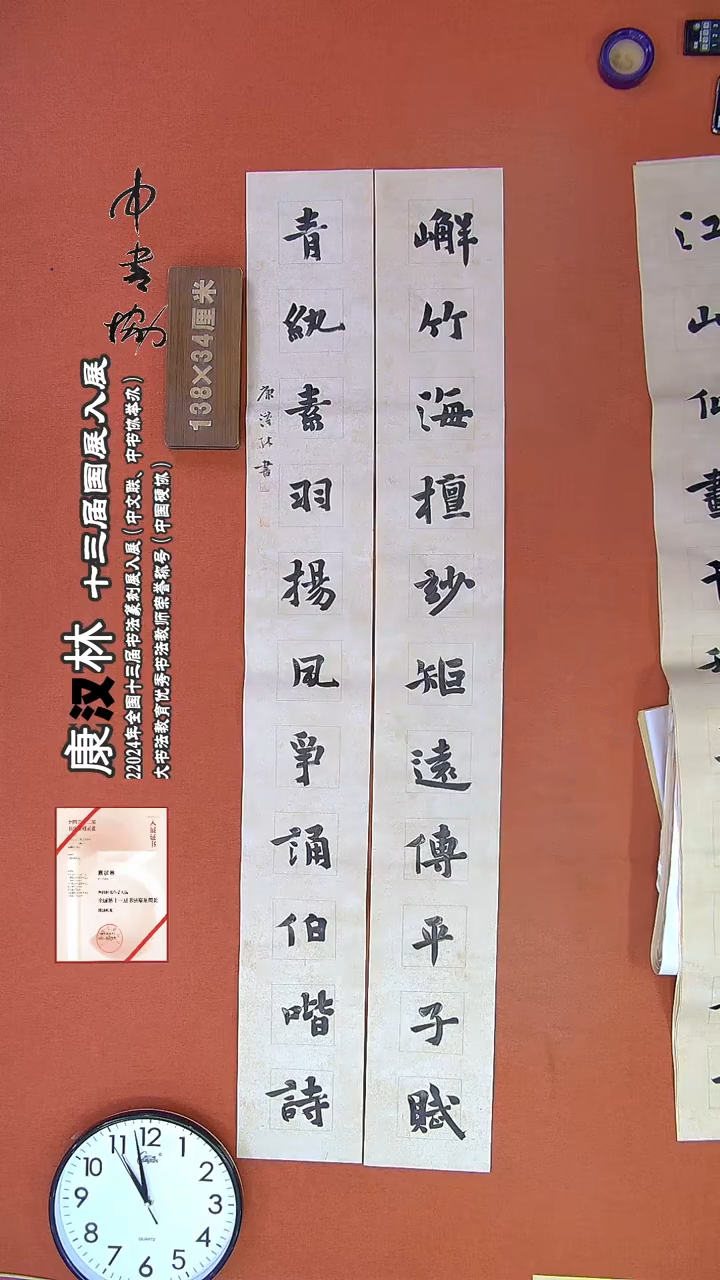 嶰竹海檀妙矩遠傳平子賦
青紈素羽揚風爭誦伯喈詩
康漢林書
138×34厘米
中书协
康汉林 十三届国展入展
22024年全国十三届书法篆刻展入展（中文联、中书协举办）
大书法教育优秀书法教师荣誉称号（中国硬协）
入展证书
12
1
2
3
4
5
6
7
8
9
10
11
QUARTZ
江
山
仙
畫